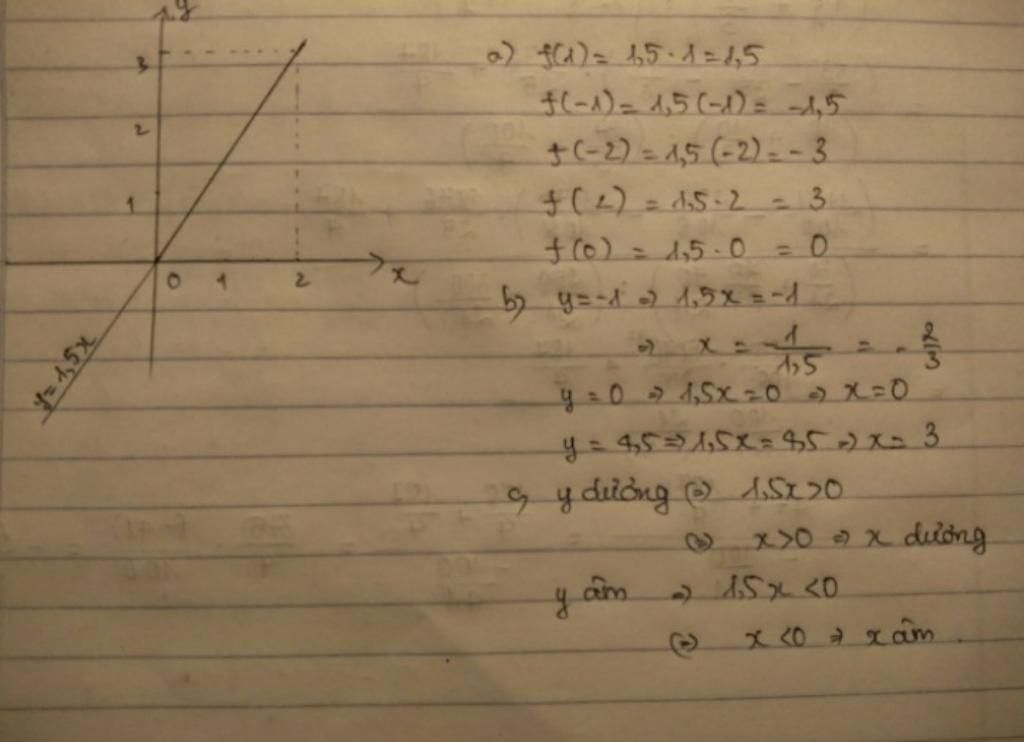 y
3
2
1
0 1 2 x
y=1,5x
a) f(1) = 1,5 · 1 = 1,5
f(-1) = 1,5(-1) = -1,5
f(-2) = 1,5(-2) = -3
f(2) = 1,5 · 2 = 3
f(0) = 1,5 · 0 = 0
b) y = -1 ⇒ 1,5x = -1
⇒ x = -1/1,5 = -2/3
y = 0 ⇒ 1,5x = 0 ⇒ x = 0
y = 4,5 ⇒ 1,5x = 4,5 ⇒ x = 3
c) y dương ⇔ 1,5x > 0
⇔ x > 0 ⇒ x dương
y âm ⇒ 1,5x < 0
⇔ x < 0 ⇒ x âm.